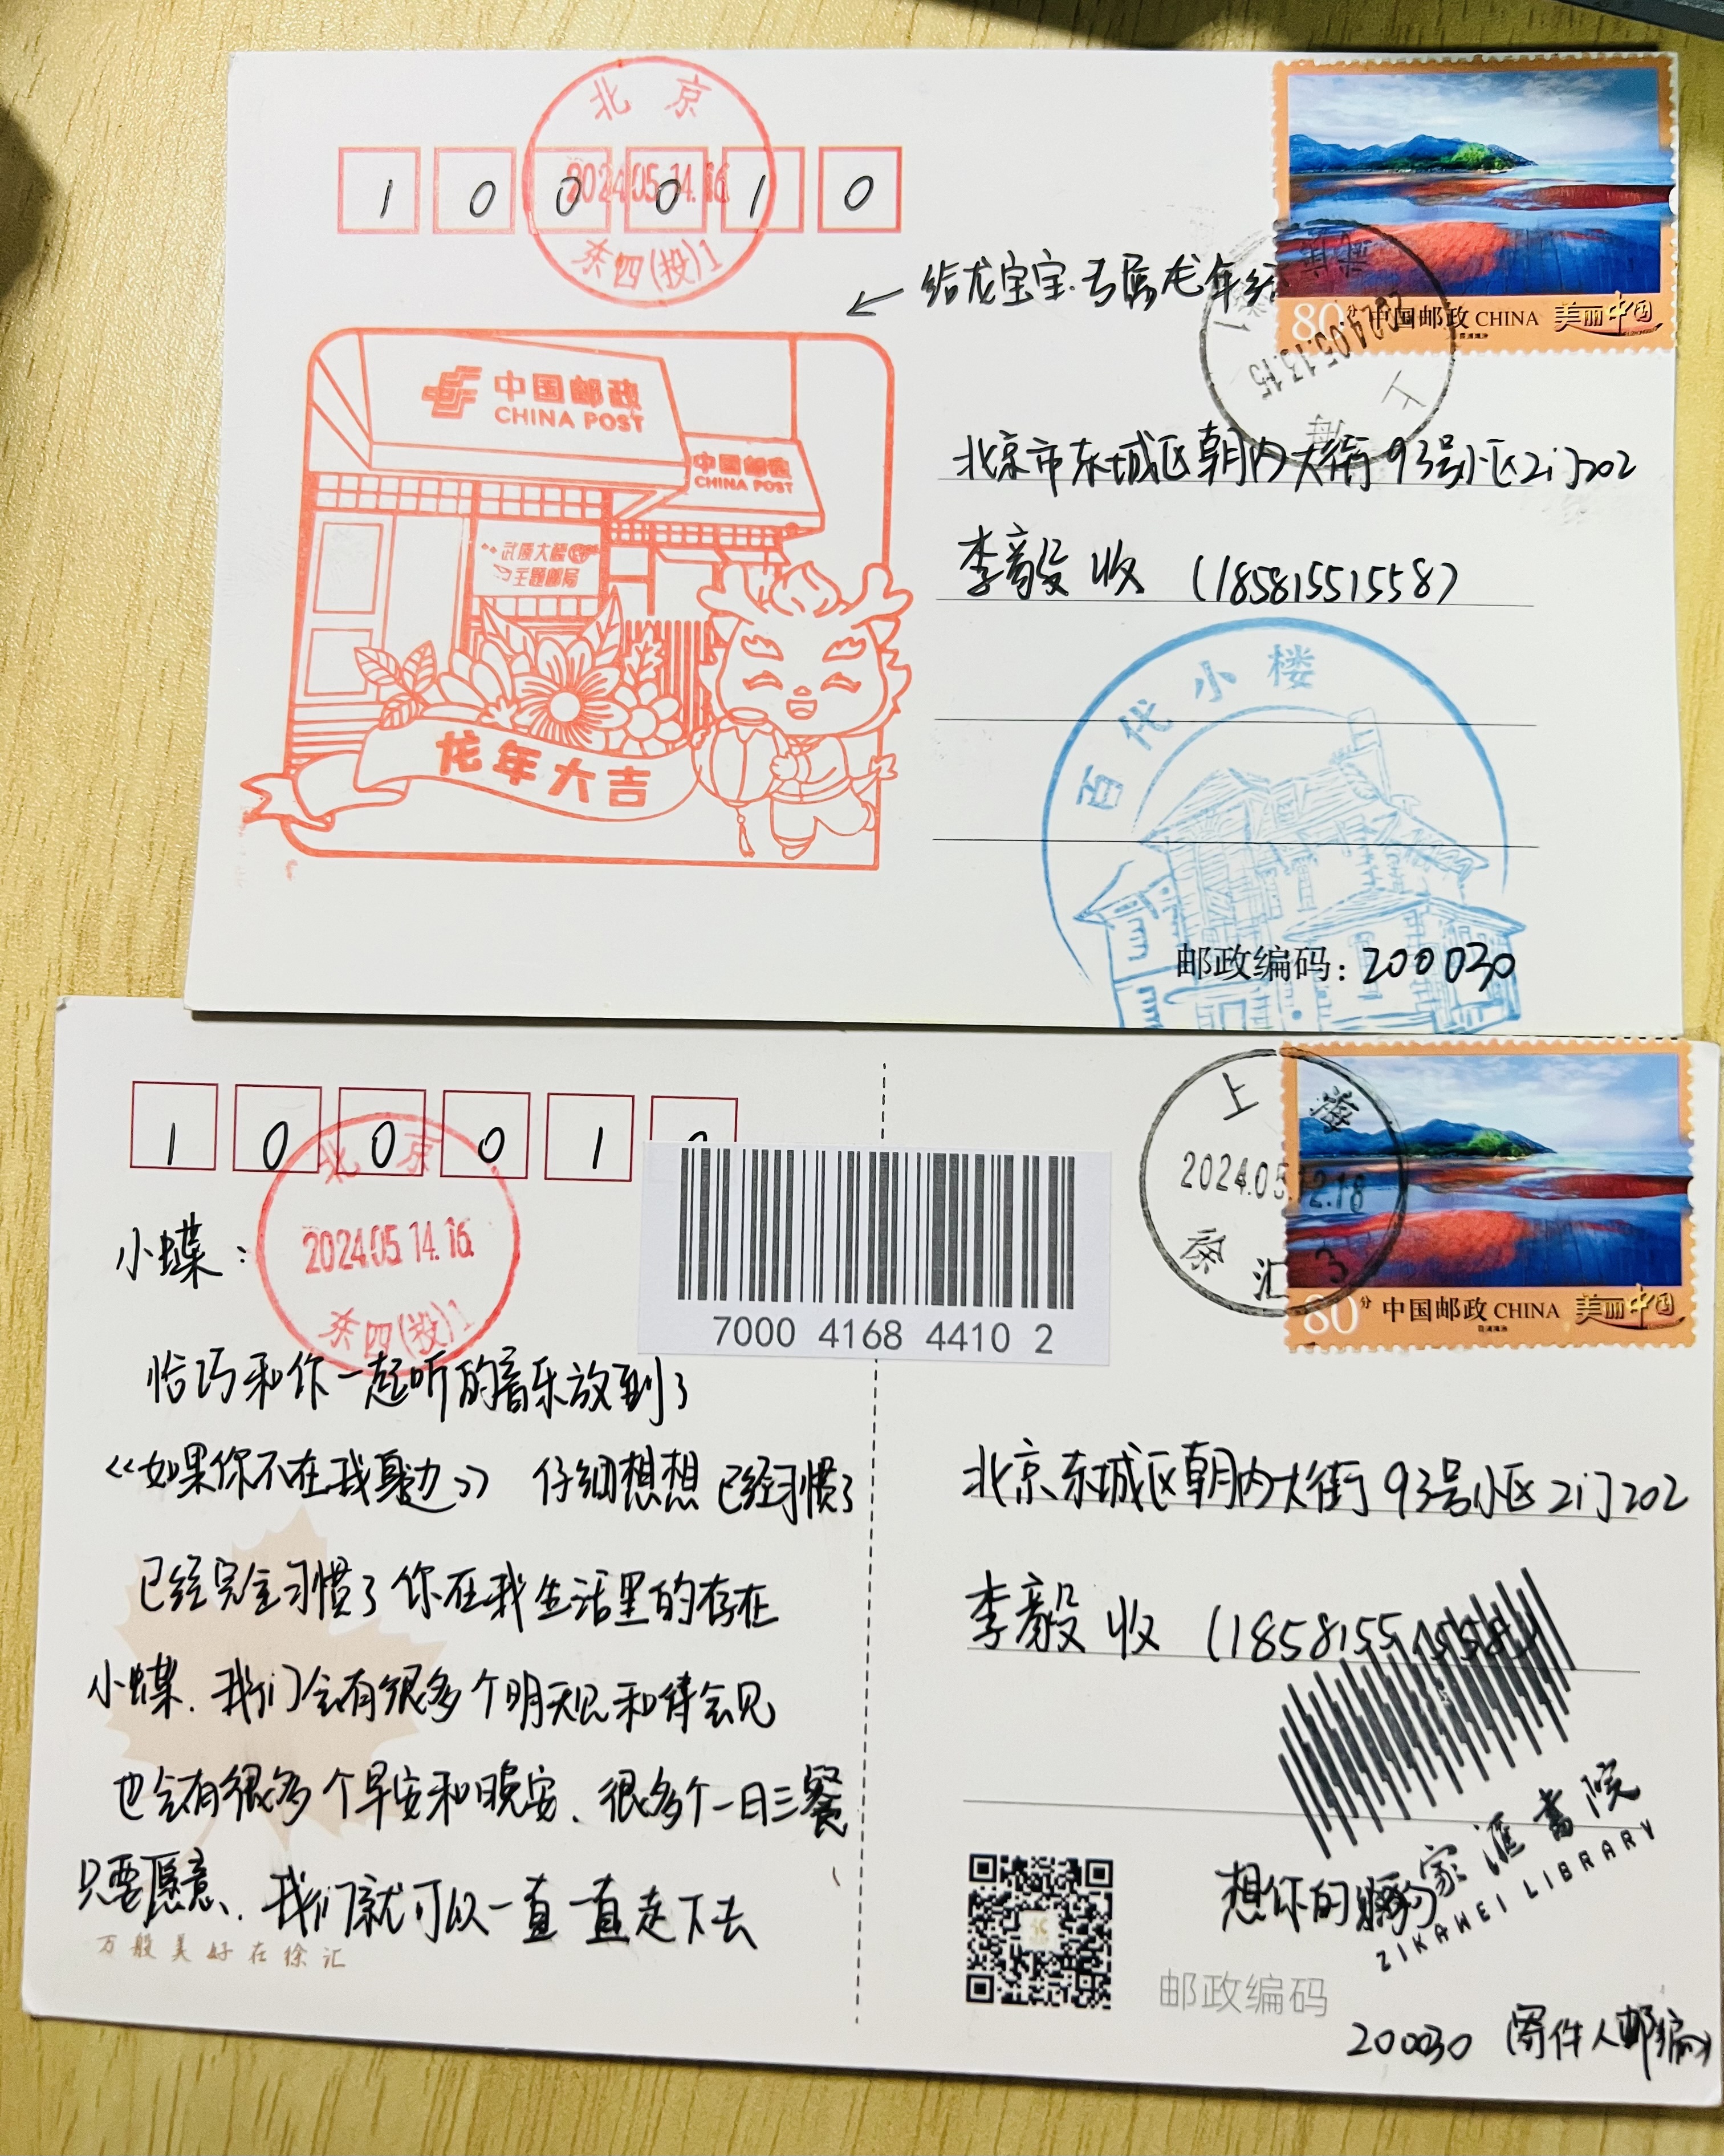 北京
2024.05.14.16
东四(投)1
1 0 0 0 1 0
给龙宝宝.专属龙年
80分 中国邮政 CHINA 美丽中国
上海
2024.05.13.15
中国邮政
CHINA POST
中国邮政
CHINA POST
主题邮局
龙年大吉
北京市东城区朝内大街93号小区2门202
李毅 收 (18581551558)
百代小楼
邮政编码：200030
1 0 0 0 1
北京
2024.05.14.16
东四(投)1
7000 4168 4410 2
上海
2024.05.12.18
徐汇 3
80分 中国邮政 CHINA 美丽中国
小蝶：
恰巧和你一起听的音乐放到了
《如果你不在我身边》 仔细想想 已经习惯了
已经完全习惯了 你在我生活里的存在
小蝶、我们会有很多个明天见和待会见
也会有很多个早安和晚安、很多个一日三餐
只要愿意、我们就可以一直一直走下去
万般美好在徐汇
北京东城区朝内大街93号小区2门202
李毅 收 (18581551558)
家汇书院
ZIKAWEI LIBRARY
想你的
邮政编码
200030 (寄件人邮编)